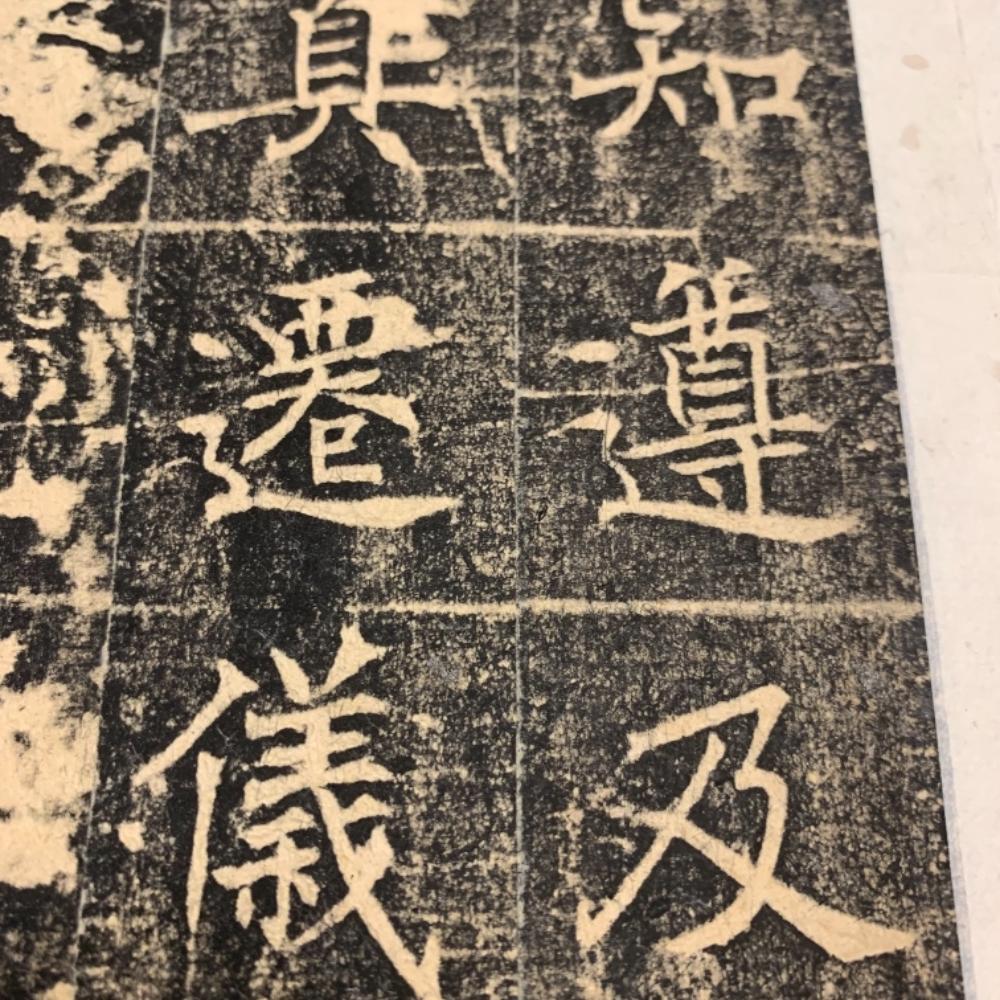 知遵及
遷儀